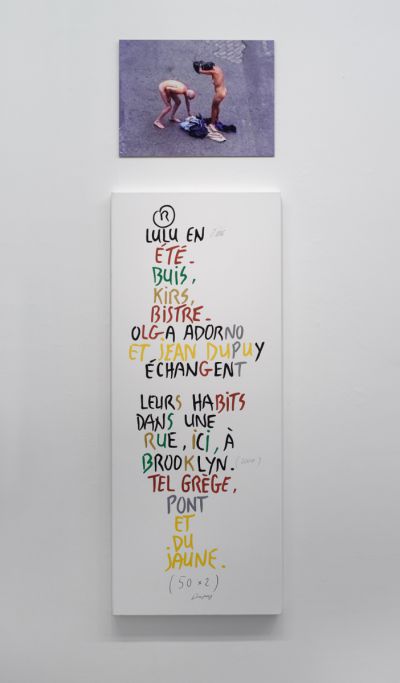 R
LULU EN
ÉTÉ.
BUIS,
KIRS,
BISTRE.
OLGA ADORNO
ET JEAN DUPUY
ÉCHANGENT
LEURS HABITS
DANS UNE
RUE, ICI, À
BROOKLYN. (2004)
TEL GRÈGE,
PONT
ET
DU
JAUNE.
(50 × 2)